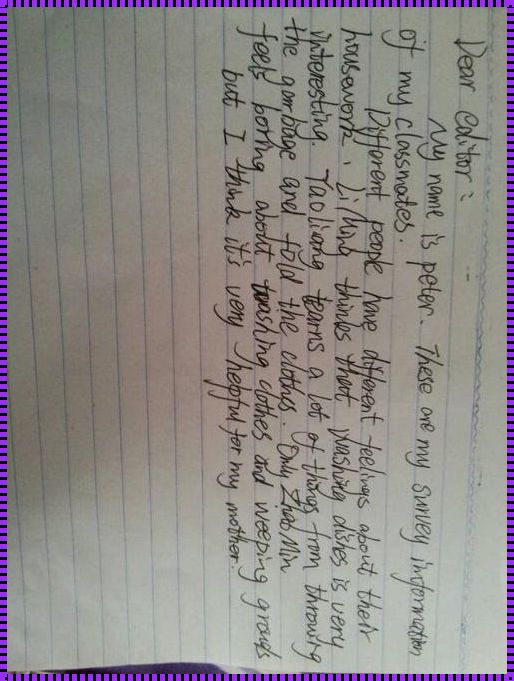 Dear editor:
My name is peter. These are my survey information
of my classmates.
Different people have different feelings about their
housework, Li Ming thinks that washing dishes is very
interesting. Yao liang learns a lot of things from throwing
the garbage and fold the clothes. Only Zhao Min
feels boring about washing clothes and weeping grounds
but I think it's very helpful for my mother.